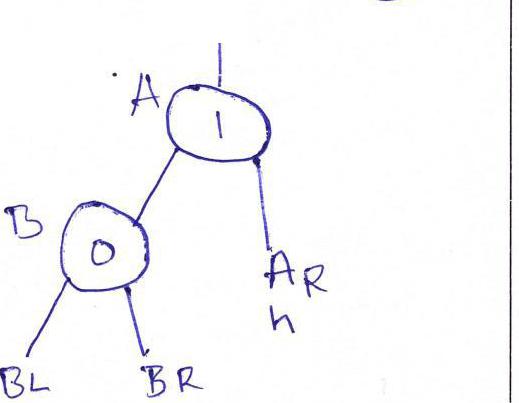 A
1
B
0
AR
h
BL
BR